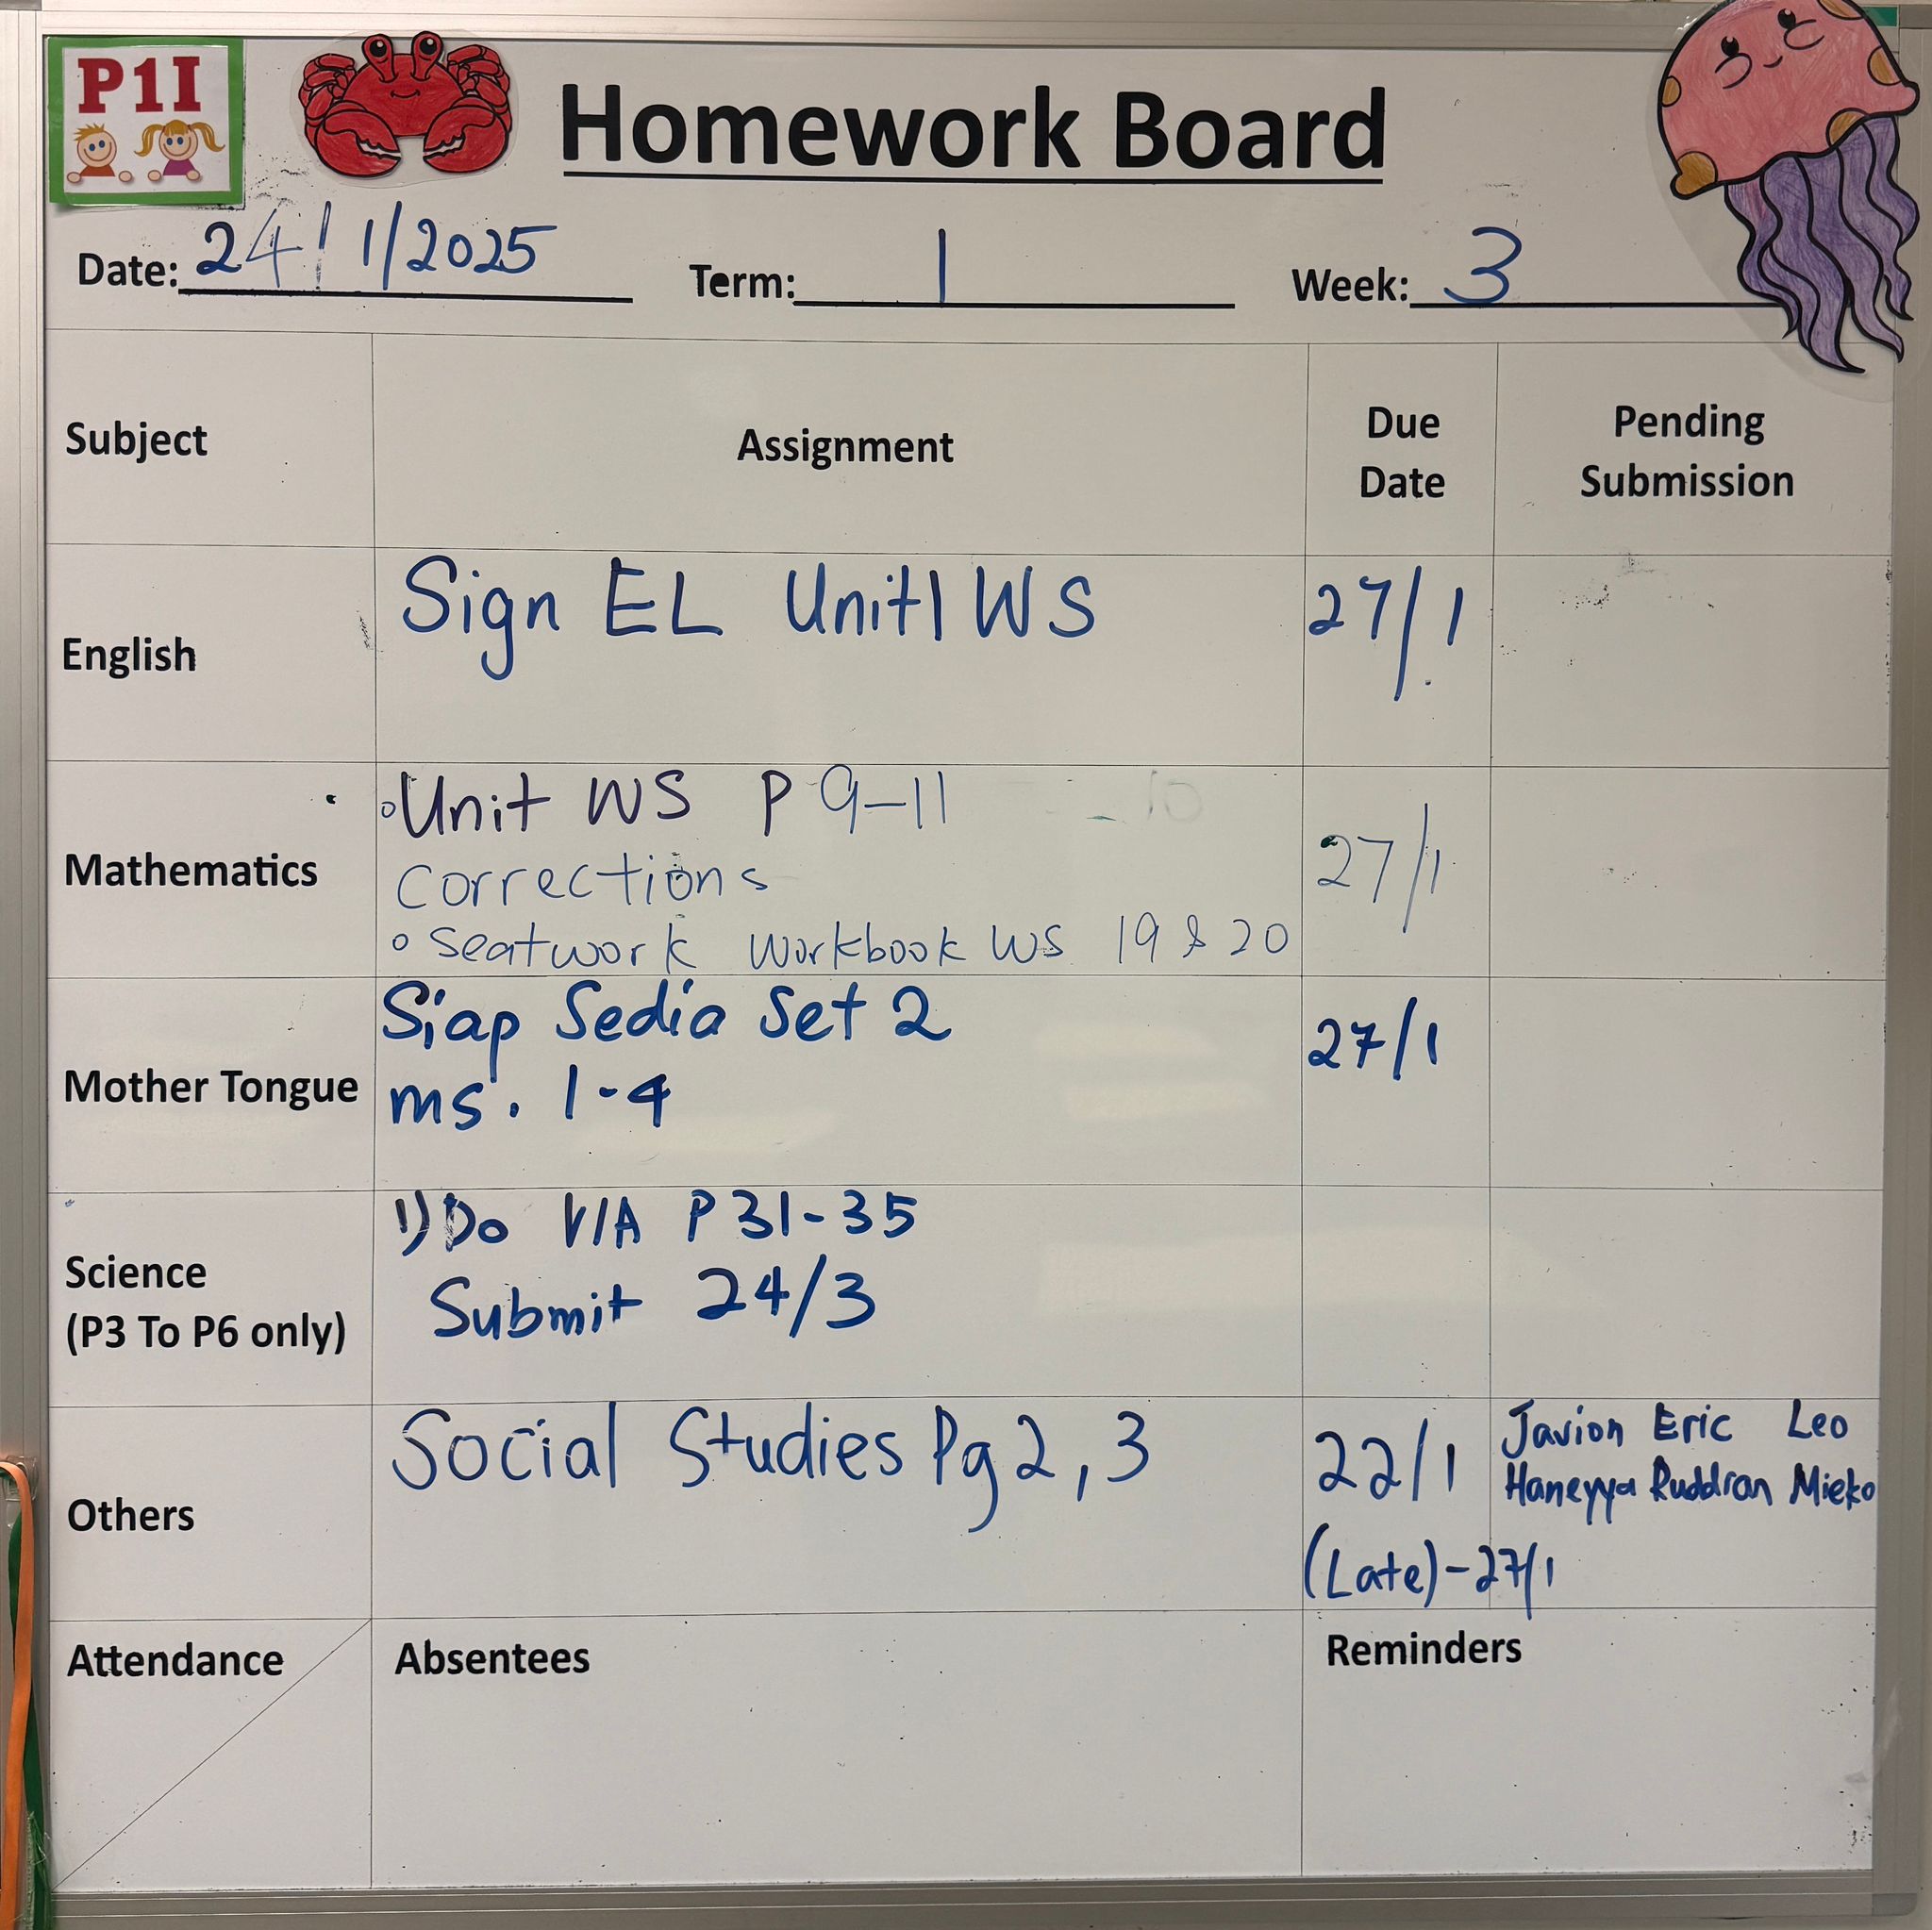 P1I
Homework Board
Date: 24/1/2025 Term: 1 Week: 3
Subject Assignment Due Date Pending Submission
English Sign EL Unit 1 WS 27/1
Mathematics Unit WS P 9-11 27/1
Corrections
Seatwork Workbook WS 19 & 20
Mother Tongue Siap Sedia Set 2 27/1
ms. 1-4
Science
(P3 To P6 only)
1) Do V/A P 31-35
Submit 24/3
Others Social Studies Pg 2, 3 22/1
(Late) - 27/1
Javion Eric Leo
Haneyya Ruddran Mieko
Attendance Absentees Reminders